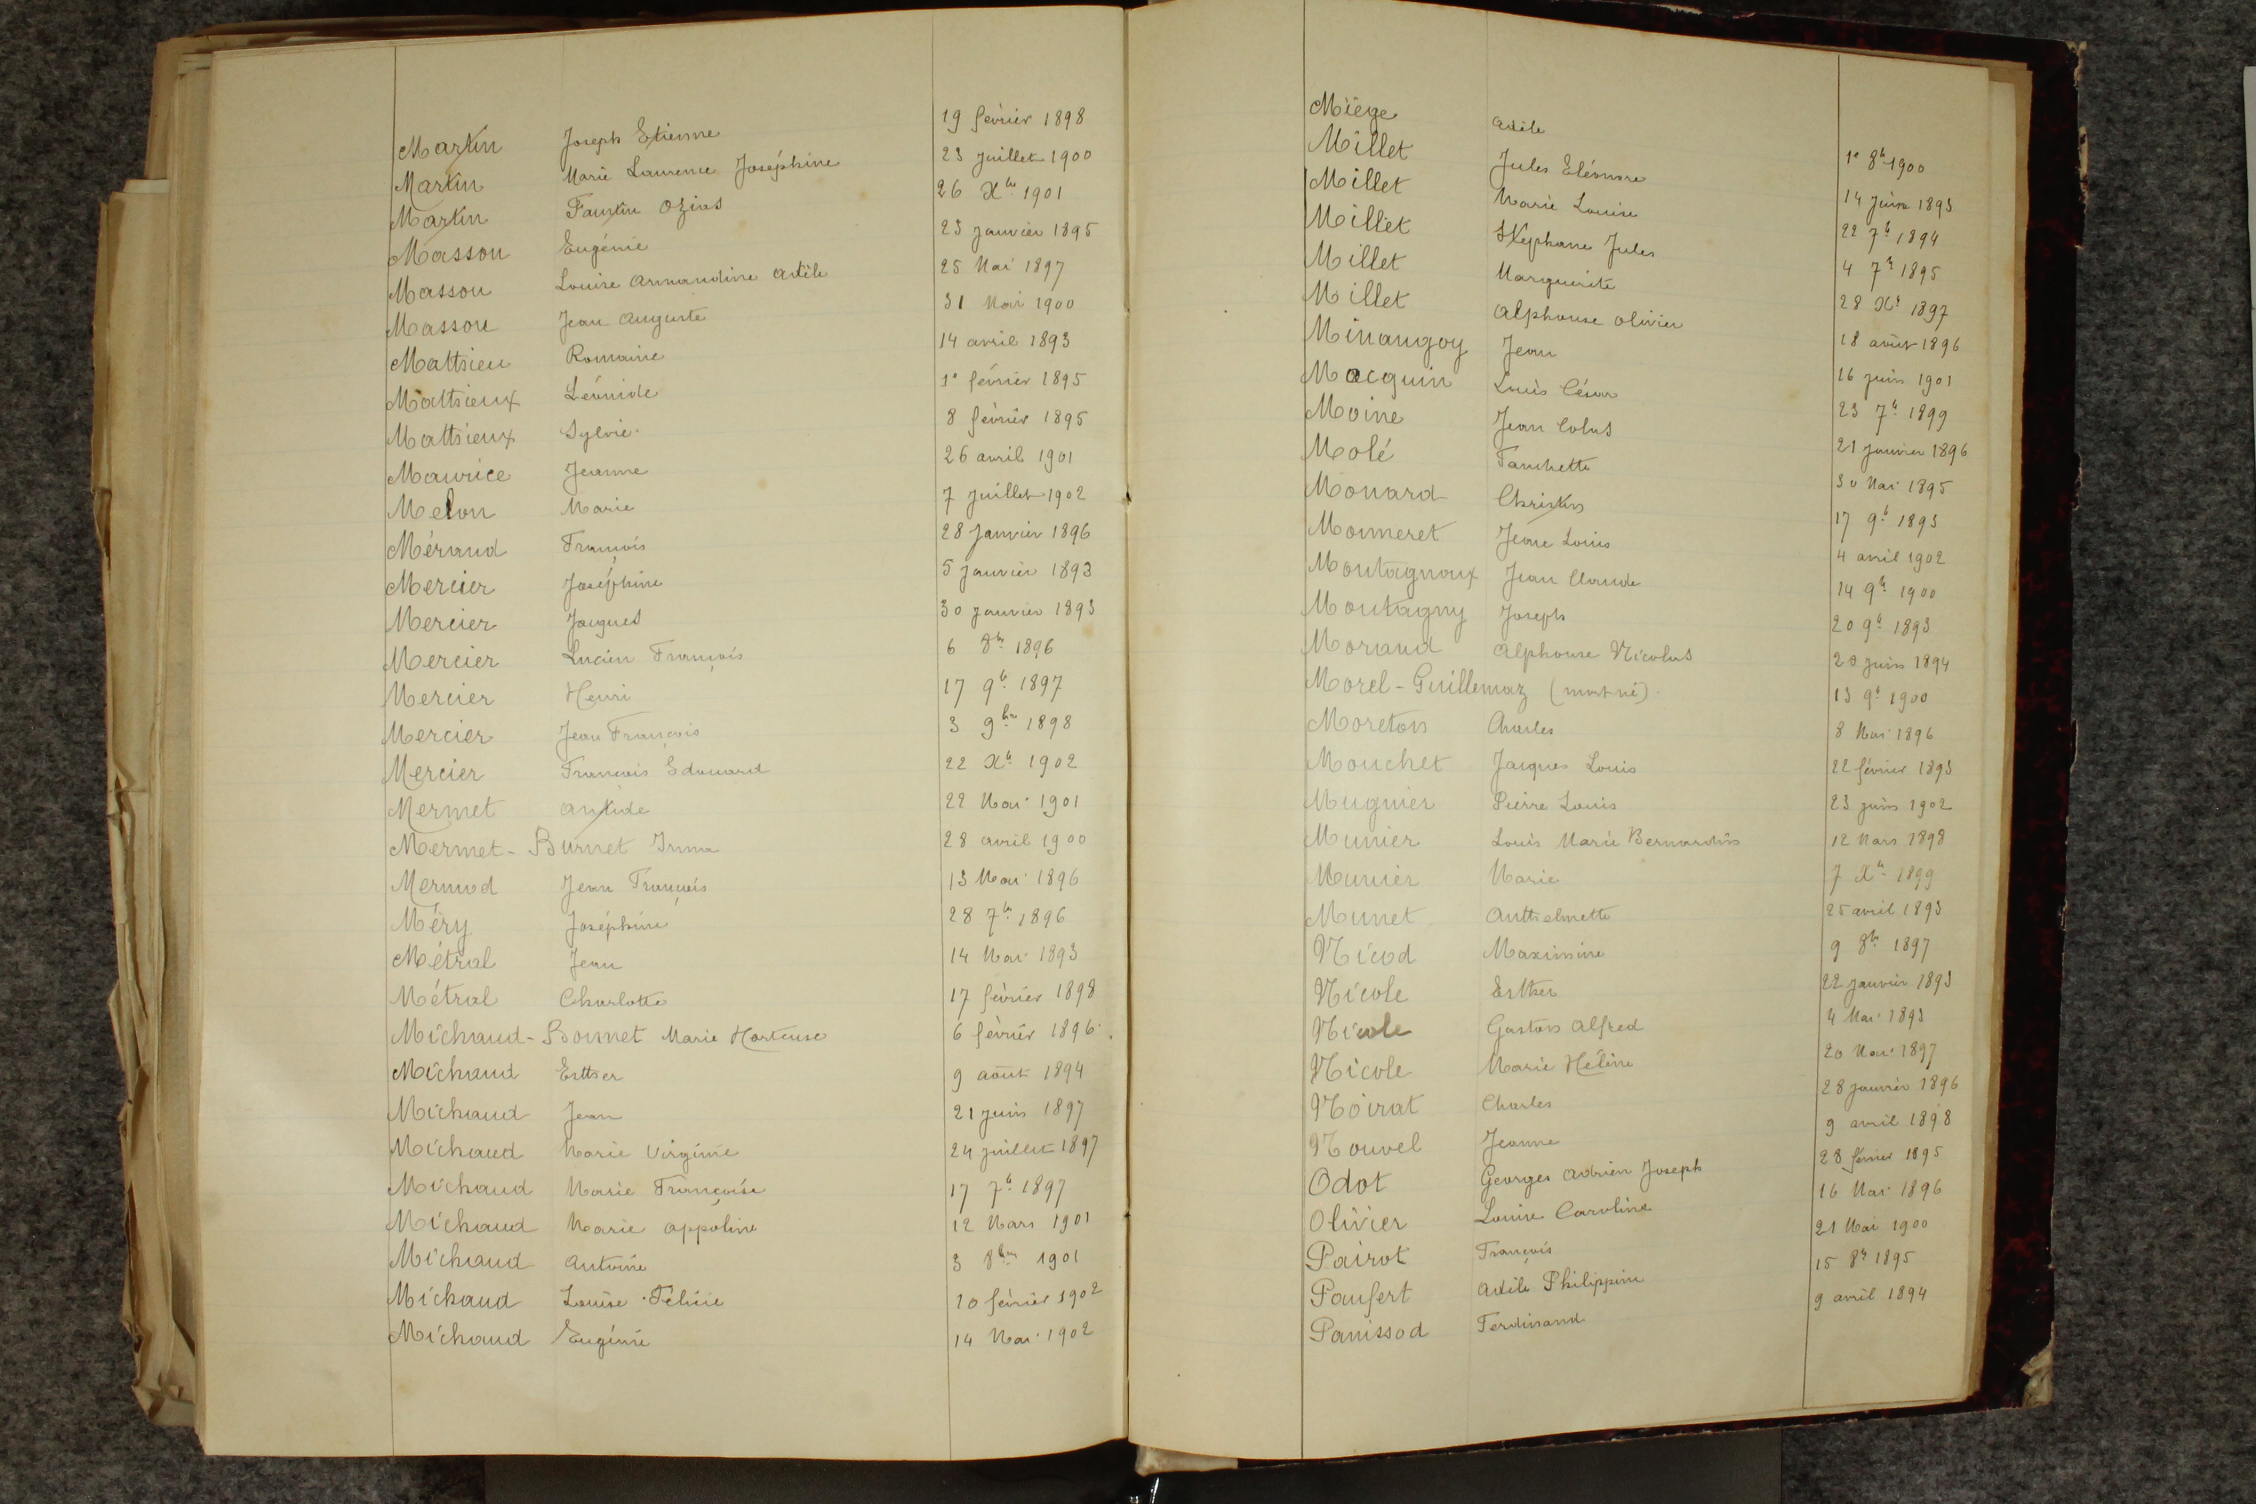 Martin Joseph Etienne 19 février 1898
Martin Marie Laurence Joséphine 23 juillet 1900
Martin Faustin Ozias 26 Xbre 1901
Masson Eugénie 23 janvier 1895
Masson Louise Armandine Adèle 25 Mai 1897
Masson Jean Auguste 31 Mai 1900
Mathieu Romaine 14 avril 1893
Mathieux Léonide 1er février 1895
Mathieux Sylvie 8 février 1895
Maurice Jeanne 26 avril 1901
Melon Marie 7 juillet 1902
Méraud François 28 janvier 1896
Mercier Joséphine 5 janvier 1893
Mercier Jacques 30 janvier 1893
Mercier Lucien François 6 8bre 1896
Mercier Henri 17 9bre 1897
Mercier Jean François 3 9bre 1898
Mercier François Edouard 22 Xbre 1902
Mermet Antide 22 Mai 1901
Mermet-Burnet Irma 28 avril 1900
Mermod Jean François 13 Mai 1896
Méry Joséphine 28 7bre 1896
Métral Jean 14 Mai 1893
Métral Charlotte 17 février 1898
Michaud-Bonnet Marie Hortense 6 février 1896
Michaud Esther 9 août 1894
Michaud Jean 21 juin 1897
Michaud Marie Virginie 24 juillet 1897
Michaud Marie Françoise 17 7bre 1897
Michaud Marie Appoline 12 Mars 1901
Michaud Antoine 3 8bre 1901
Michaud Louise Félicie 20 février 1902
Michaud Eugénie 14 Mai 1902
Miège Adèle 1er 8bre 1900
Millet Jules Eléonore 14 juin 1893
Millet Marie Louise 22 7bre 1894
Millet Stéphane Jules 4 7bre 1895
Millet Marguerite 28 Xbre 1897
Millet Alphonse Olivier 18 août 1896
Minaugoy Jean 16 juin 1901
Macquin Louis César 23 7bre 1899
Moine Jean Colas 21 janvier 1896
Molé Fanchette 30 Mai 1895
Monard Christin 17 9bre 1893
Monneret Jean Louis 4 avril 1902
Montagnaux Jean Claude 14 9bre 1900
Montagny Joseph 20 9bre 1893
Morand Alphonse Nicolas 20 juin 1894
Morel-Guillemaz (mort né) 13 9bre 1900
Moreton Charles 8 Mai 1896
Mouchet Jacques Louis 22 février 1893
Mugnier Pierre Louis 23 juin 1902
Munier Louis Marie Bernardin 12 Mars 1898
Munier Marie 7 Xbre 1899
Munet Anthelmette 25 avril 1893
Nicod Maximine 9 8bre 1897
Nicole Esther 22 janvier 1893
Nicole Gaston Alfred 4 Mai 1893
Nicole Marie Hélène 20 Mai 1897
Noirat Charles 28 janvier 1896
Nouvel Jeanne 9 avril 1898
Odot Georges Adrien Joseph 28 février 1895
Olivier Louise Caroline 16 Mai 1896
Pairot François 21 Mai 1900
Panfert Adèle Philippine 15 8bre 1895
Panissod Ferdinand 9 avril 1894